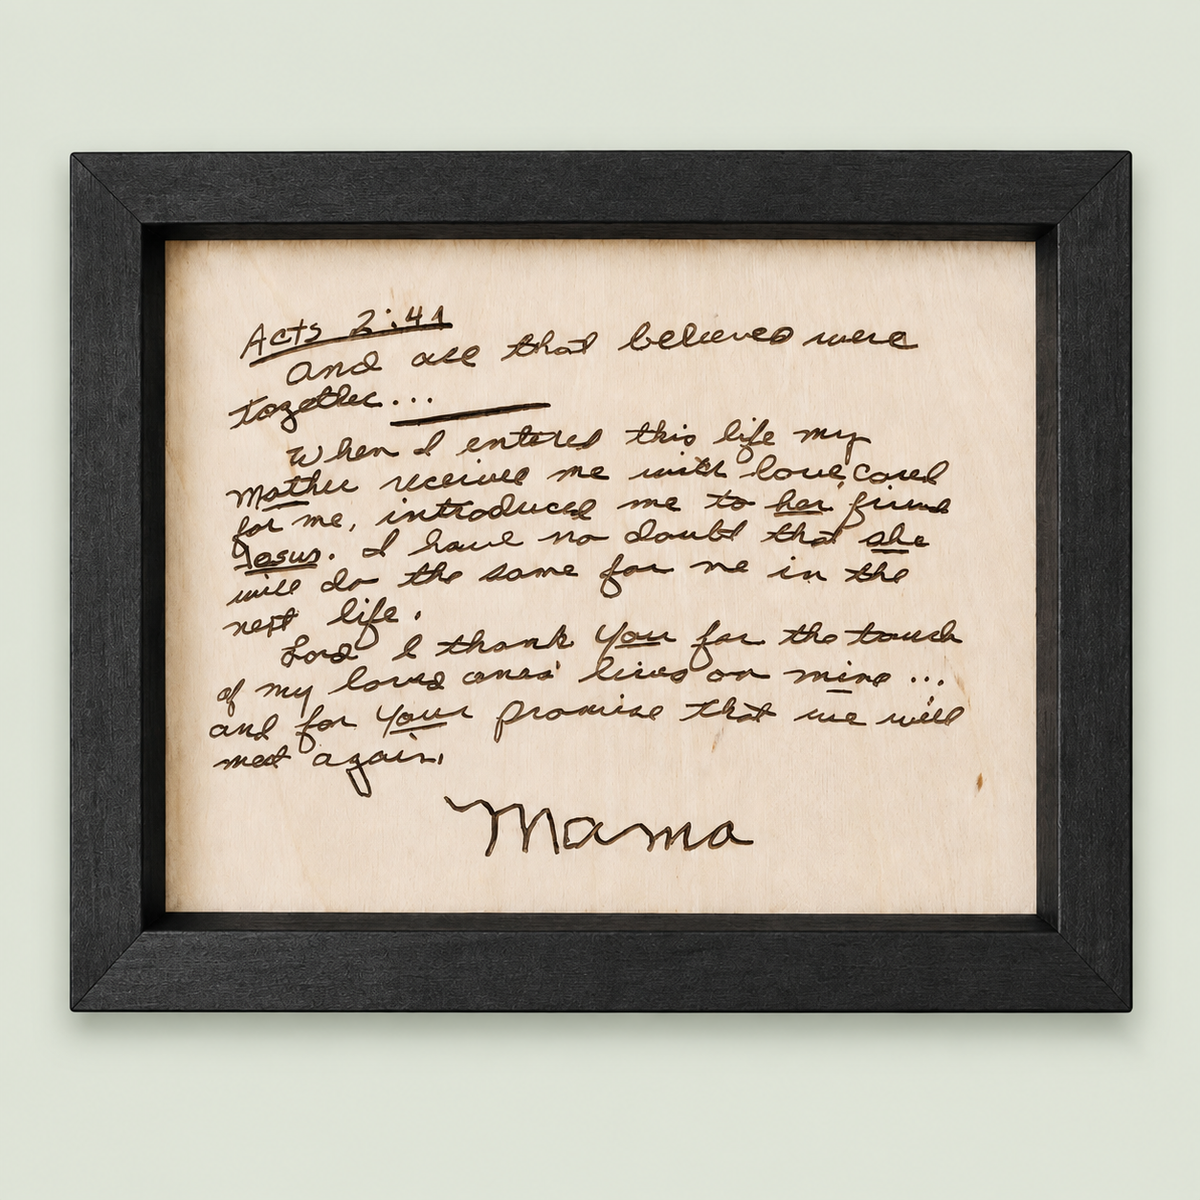 Acts 2:41
and all that believed were
together...
When I entered this life my
Mother received me with love, cared
for me, introduced me to her friend
Jesus. I have no doubt that she
will do the same for me in the
next life.
Lord I thank You for the touch
of my loved ones' lives on mine...
and for Your promise that we will
meet again.
Mama